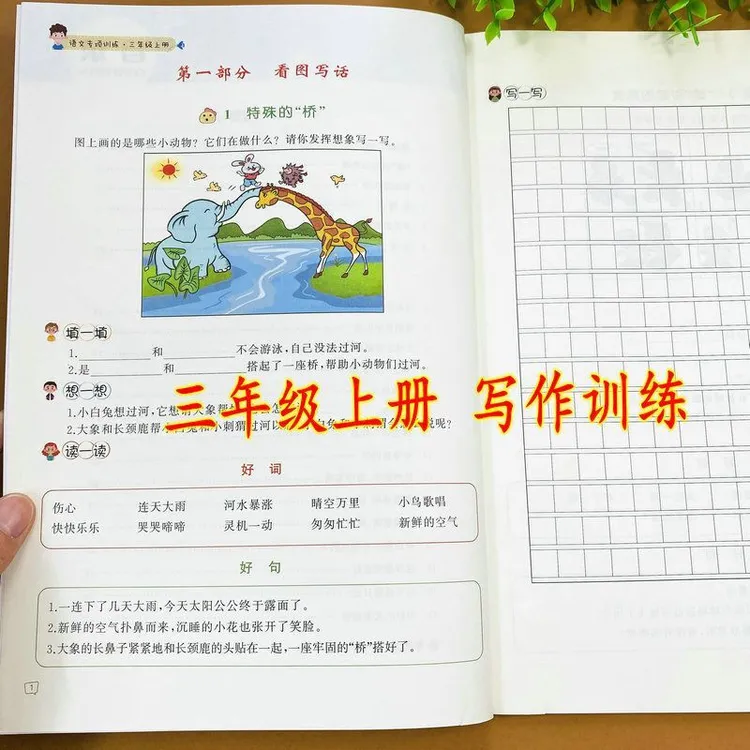 语文专项训练·三年级上册
第一部分 看图写话
1 特殊的“桥”
图上画的是哪些小动物？它们在做什么？请你发挥想象写一写。
填一填
1.__________和__________不会游泳，自己没法过河。
2.是__________和__________搭起了一座桥，帮助小动物们过河。
想一想
1.小白兔想过河，它想请大象帮
2.大象和长颈鹿帮小白兔和小刺猬过河以
说呢？
三年级上册 写作训练
读一读
好词
伤心 连天大雨 河水暴涨 晴空万里 小鸟歌唱
快快乐乐 哭哭啼啼 灵机一动 匆匆忙忙 新鲜的空气
好句
1.一连下了几天大雨，今天太阳公公终于露面了。
2.新鲜的空气扑鼻而来，沉睡的小花也张开了笑脸。
3.大象的长鼻子紧紧地和长颈鹿的头贴在一起，一座牢固的“桥”搭好了。
1
写一写